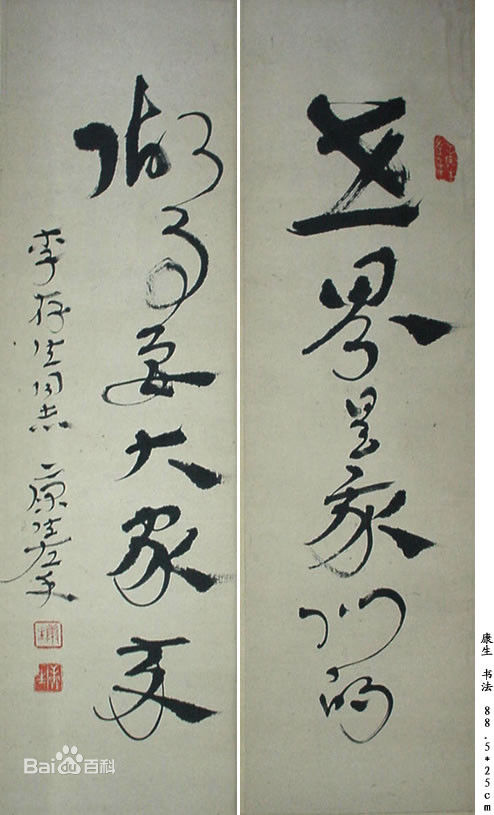 世界是我们的
做事要大家来
李存生同志 康生左手
康生 书法 88.5*25cm
Bai百科